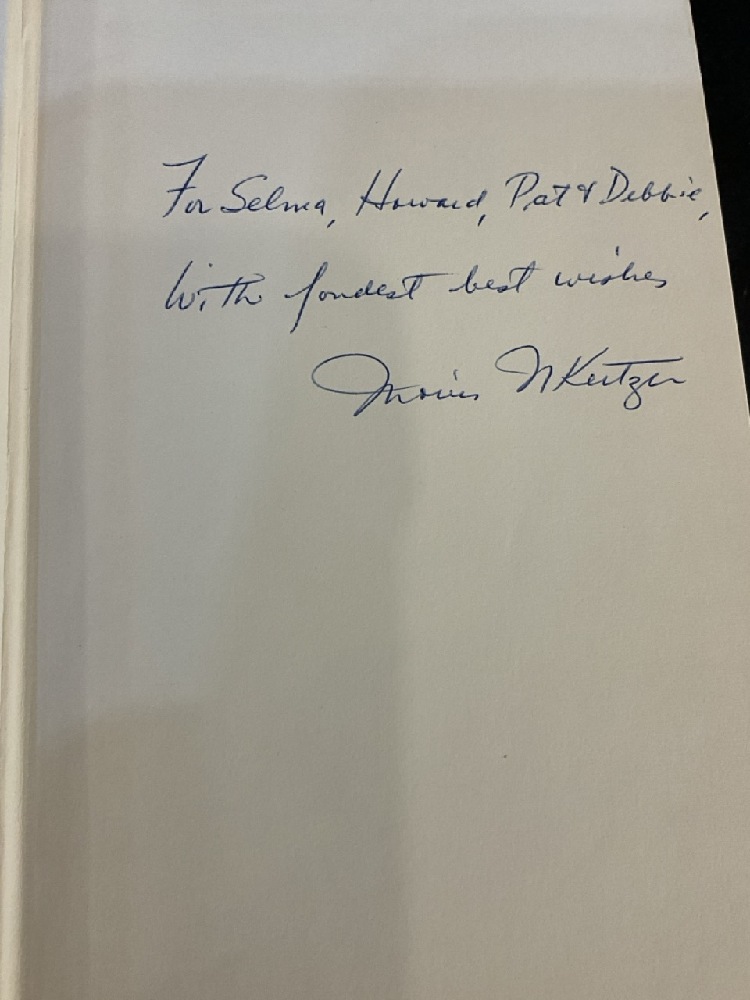 For Selma, Howard, Pat & Debbie,
With fondest best wishes
Morris N Kertzer